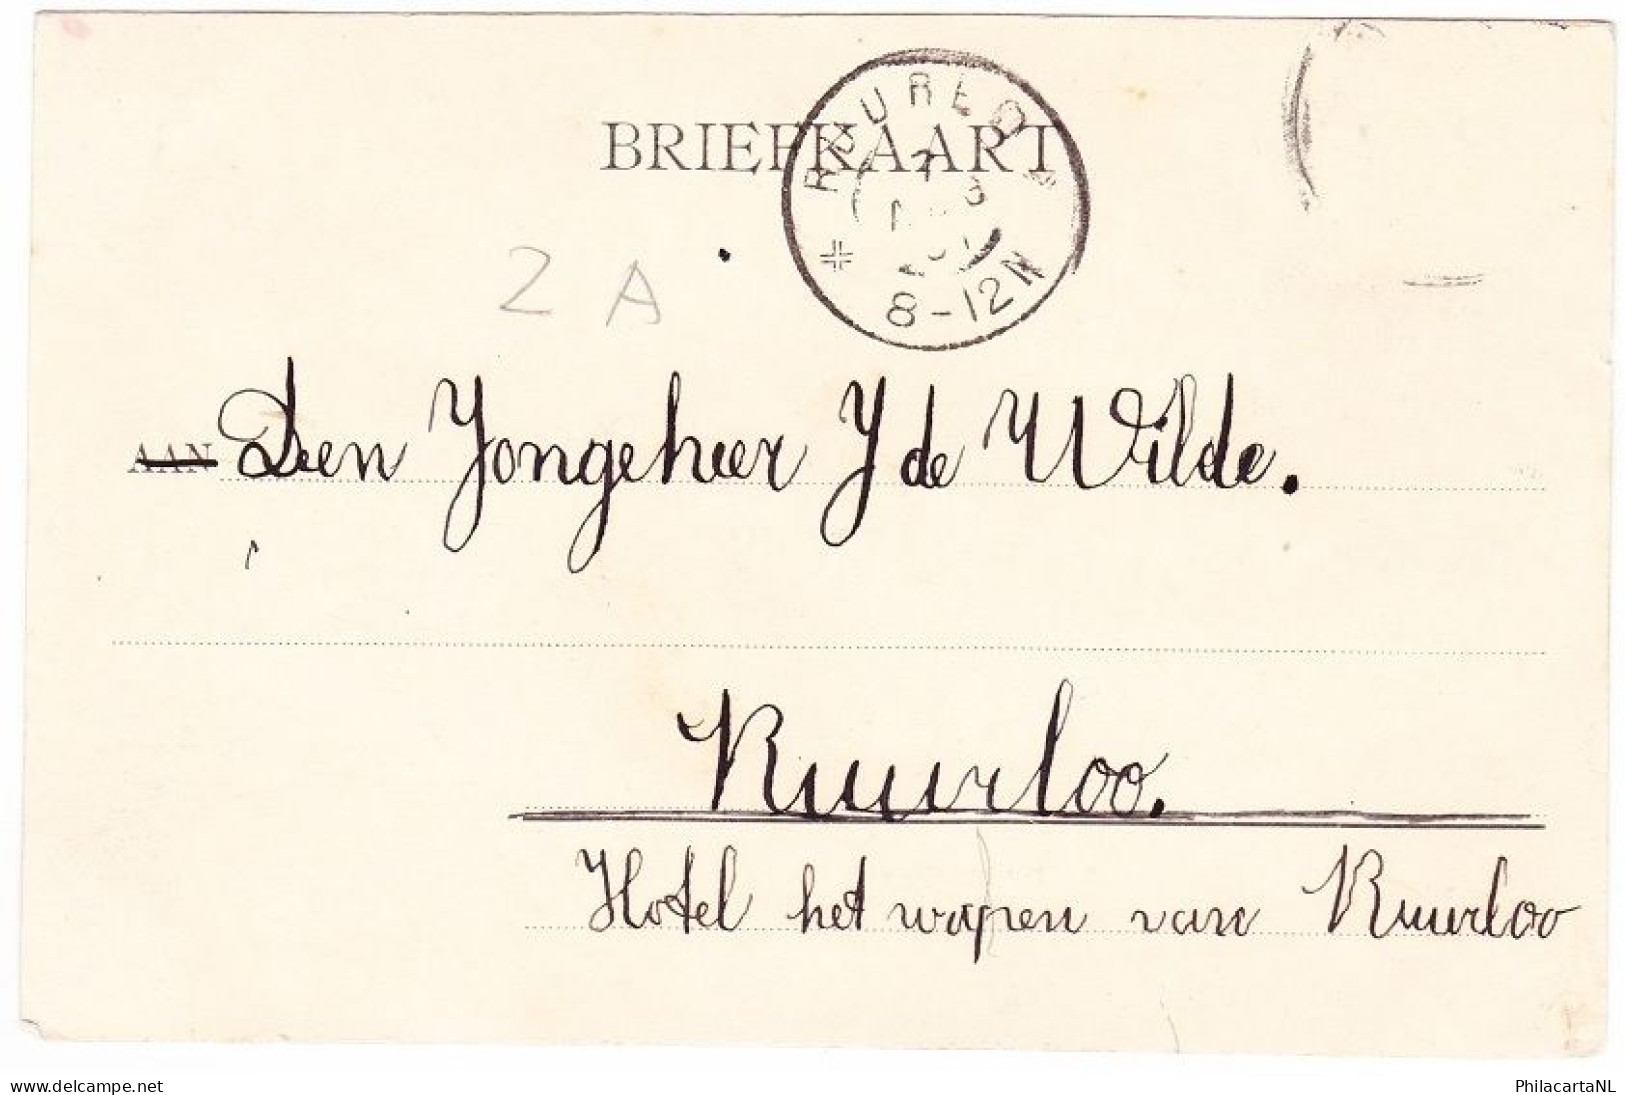 BRIEFKAART
RUURLOO
8-12N
2 A
AAN Den Jongeheer J de Wilde.
Ruurloo.
Hotel het wapen van Ruurloo
www.delcampe.net
PhilacartaNL